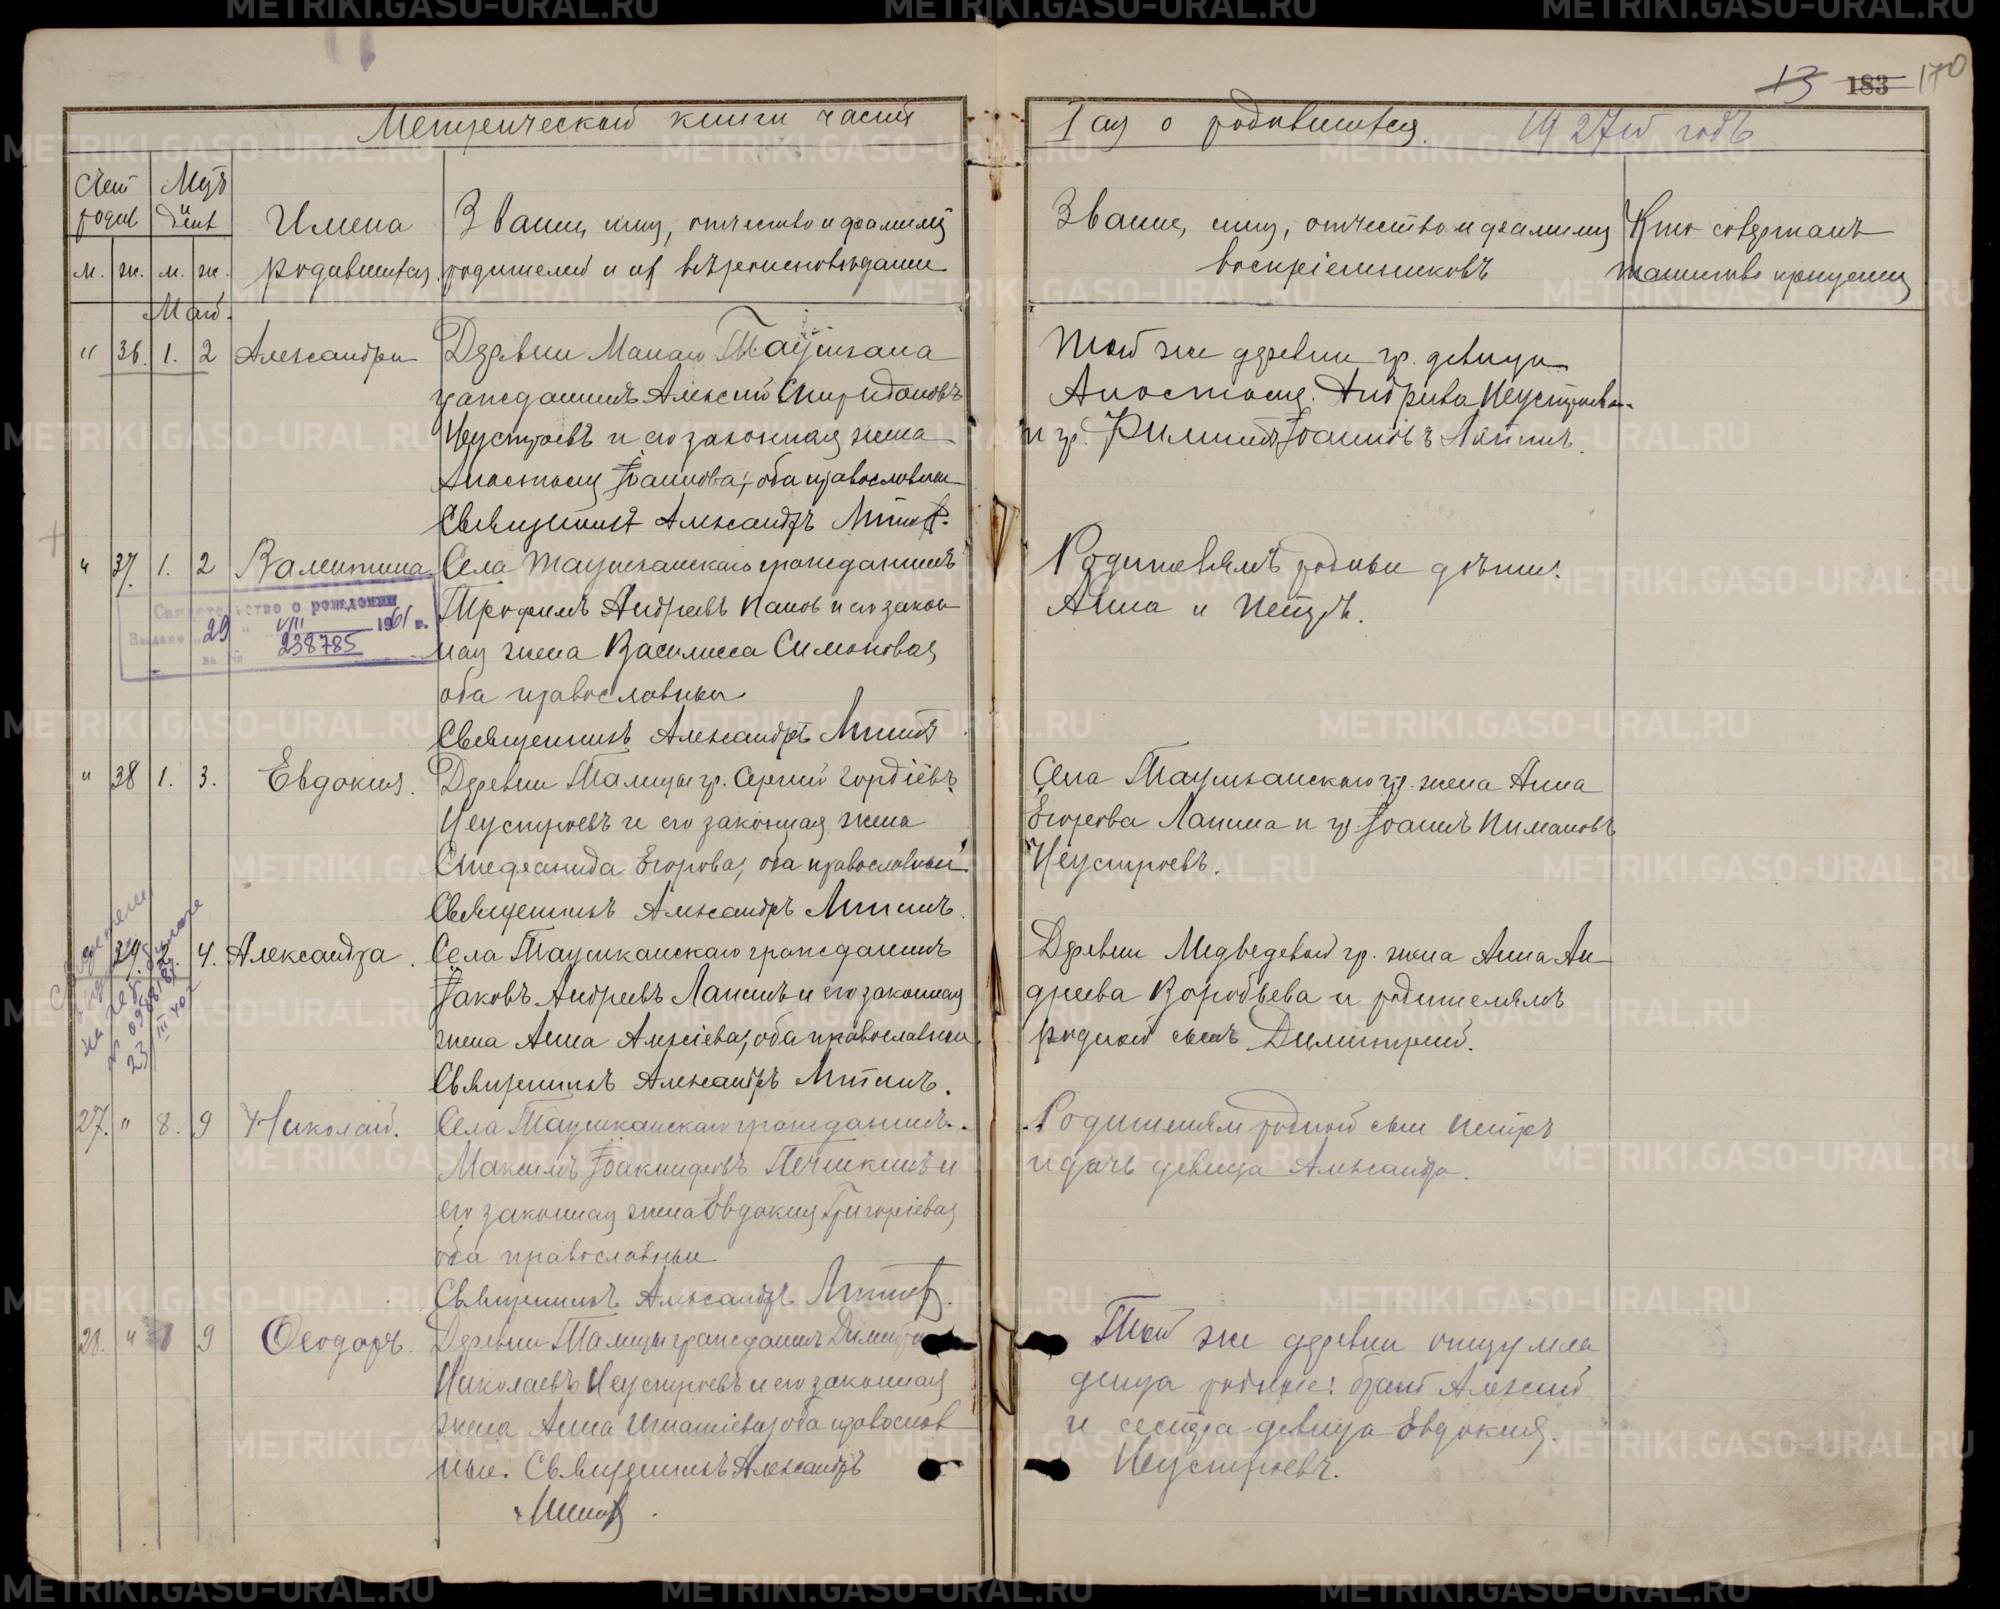 13 183 170
Метрической книги часть
I ая о родившихся. 1927й годъ
Счет родив
Мцъ и день
Имена родившихся.
Званiе, имя, отчество и фамилия
родителей и их вѣроисповѣдание
Званiе, имя, отчество и фамилия
воспрiемниковъ
Кто совершалъ
таинство крещения
м. ж. м. ж.
Май.
" 36. 1. 2 Александра
Деревни Малаго Таушкана
гражданинъ Алексий Спиридоновъ
Неустроевъ и его законная жена
Анастасия Iоаннова, оба православные
Священникъ Александръ
Той же деревни гр. девица
Анастасия Андриева Неустроева
и гр. Филиппъ Iоанновъ Лапинъ.
" 37. 1. 2 Валентина.
Села Таушканскаго гражданинъ
Трофимъ Андреевъ Панов и его закон
ная жена Василисса Симоновая,
оба православные
Священникъ Александръ
Свидетельство о рождении
Выдано 29 " VIII 1961 г.
за № 238785
Родителямъ родные дѣти:
Анна и Петръ.
" 38 1. 3. Евдокия.
Деревни Талицы гр. Сергий Гордiевъ
Неустроевъ и его законная жена
Стефанида Егорова, оба православные
Священникъ Александръ
Села Таушканскаго гр. жена Анна
Егорова Лапина и гр. Iоаннъ Пимановъ
Неустроевъ.
" 39. 2. 4. Александра.
Села Таушканскаго гражданинъ
Iаковъ Андреевъ Лапинъ и его законная
жена Анна, оба православные
Священникъ Александръ
Деревни Медведевой гр. жена Анна Ан
дреева Воробьева и родителямъ
родной сынъ Димитрий.
27. " 8. 9 Николай.
Села Таушканскаго гражданинъ
Максимъ Iоакимовъ Печинкинъ и
его законная жена Евдокия Григорiевая
оба православные.
Священникъ Александръ
Родителям родной сын Петръ
и дочь девица Александра.
28. " 9 Ѳеодоръ.
Деревни Талицы гражданин Димитрий
Николаевъ Неустроевъ и его законная
жена Анна Игнатiева, оба православ
ные. Священникъ Александръ
Той же деревни отцу мла
денца родные: брат Алексий
и сестра девица Евдокия.
Неустроевъ.
METRIKI.GASO-URAL.RU